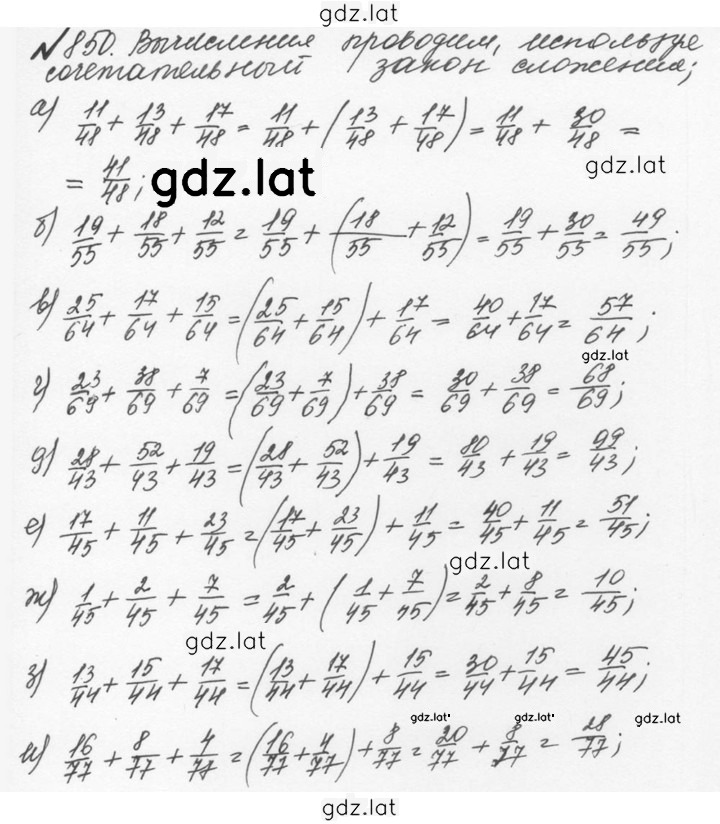 gdz.lat
№850. Вычисления проводим, используя
сочетательный закон сложения;
а) 11/48 + 13/48 + 17/48 = 11/48 + (13/48 + 17/48) = 11/48 + 30/48 =
= 41/48; gdz.lat
б) 19/55 + 18/55 + 12/55 = 19/55 + (18/55 + 12/55) = 19/55 + 30/55 = 49/55;
в) 25/64 + 17/64 + 15/64 = (25/64 + 15/64) + 17/64 = 40/64 + 17/64 = 57/64;
gdz.lat
г) 23/69 + 38/69 + 7/69 = (23/69 + 7/69) + 38/69 = 30/69 + 38/69 = 68/69;
д) 28/43 + 52/43 + 19/43 = (28/43 + 52/43) + 19/43 = 80/43 + 19/43 = 99/43;
е) 17/45 + 11/45 + 23/45 = (17/45 + 23/45) + 11/45 = 40/45 + 11/45 = 51/45;
gdz.lat
ж) 1/45 + 2/45 + 7/45 = 2/45 + (1/45 + 7/45) = 2/45 + 8/45 = 10/45;
gdz.lat
з) 13/44 + 15/44 + 17/44 = (13/44 + 17/44) + 15/44 = 30/44 + 15/44 = 45/44;
gdz.lat gdz.lat gdz.lat
и) 16/77 + 8/77 + 4/77 = (16/77 + 4/77) + 8/77 = 20/77 + 8/77 = 28/77;
gdz.lat